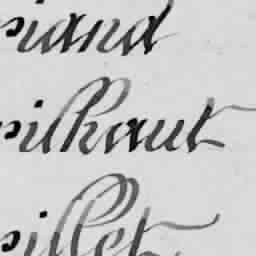 piand
pilhaut
pillet